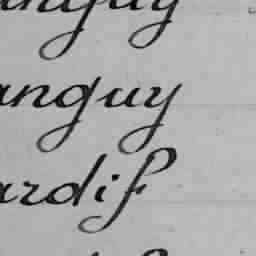 anguy
anguy
ardif